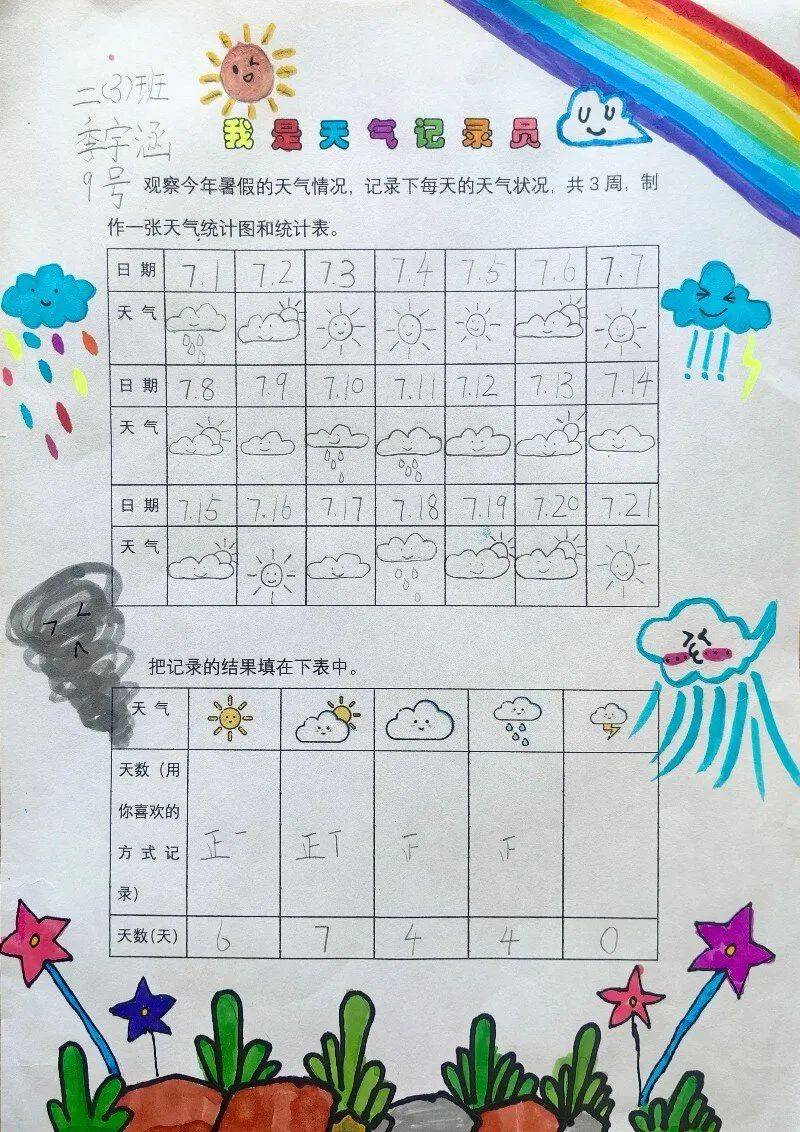 二(3)班
季宇涵
9号
我是天气记录员
观察今年暑假的天气情况，记录下每天的天气状况，共3周，制
作一张天气统计图和统计表。
日期 7.1 7.2 7.3 7.4 7.5 7.6 7.7
天气
日期 7.8 7.9 7.10 7.11 7.12 7.13 7.14
天气
日期 7.15 7.16 7.17 7.18 7.19 7.20 7.21
天气
把记录的结果填在下表中。
天气
天数（用
你喜欢的
方式记
录）
正一 正丅
天数(天) 6 7 4 4 0